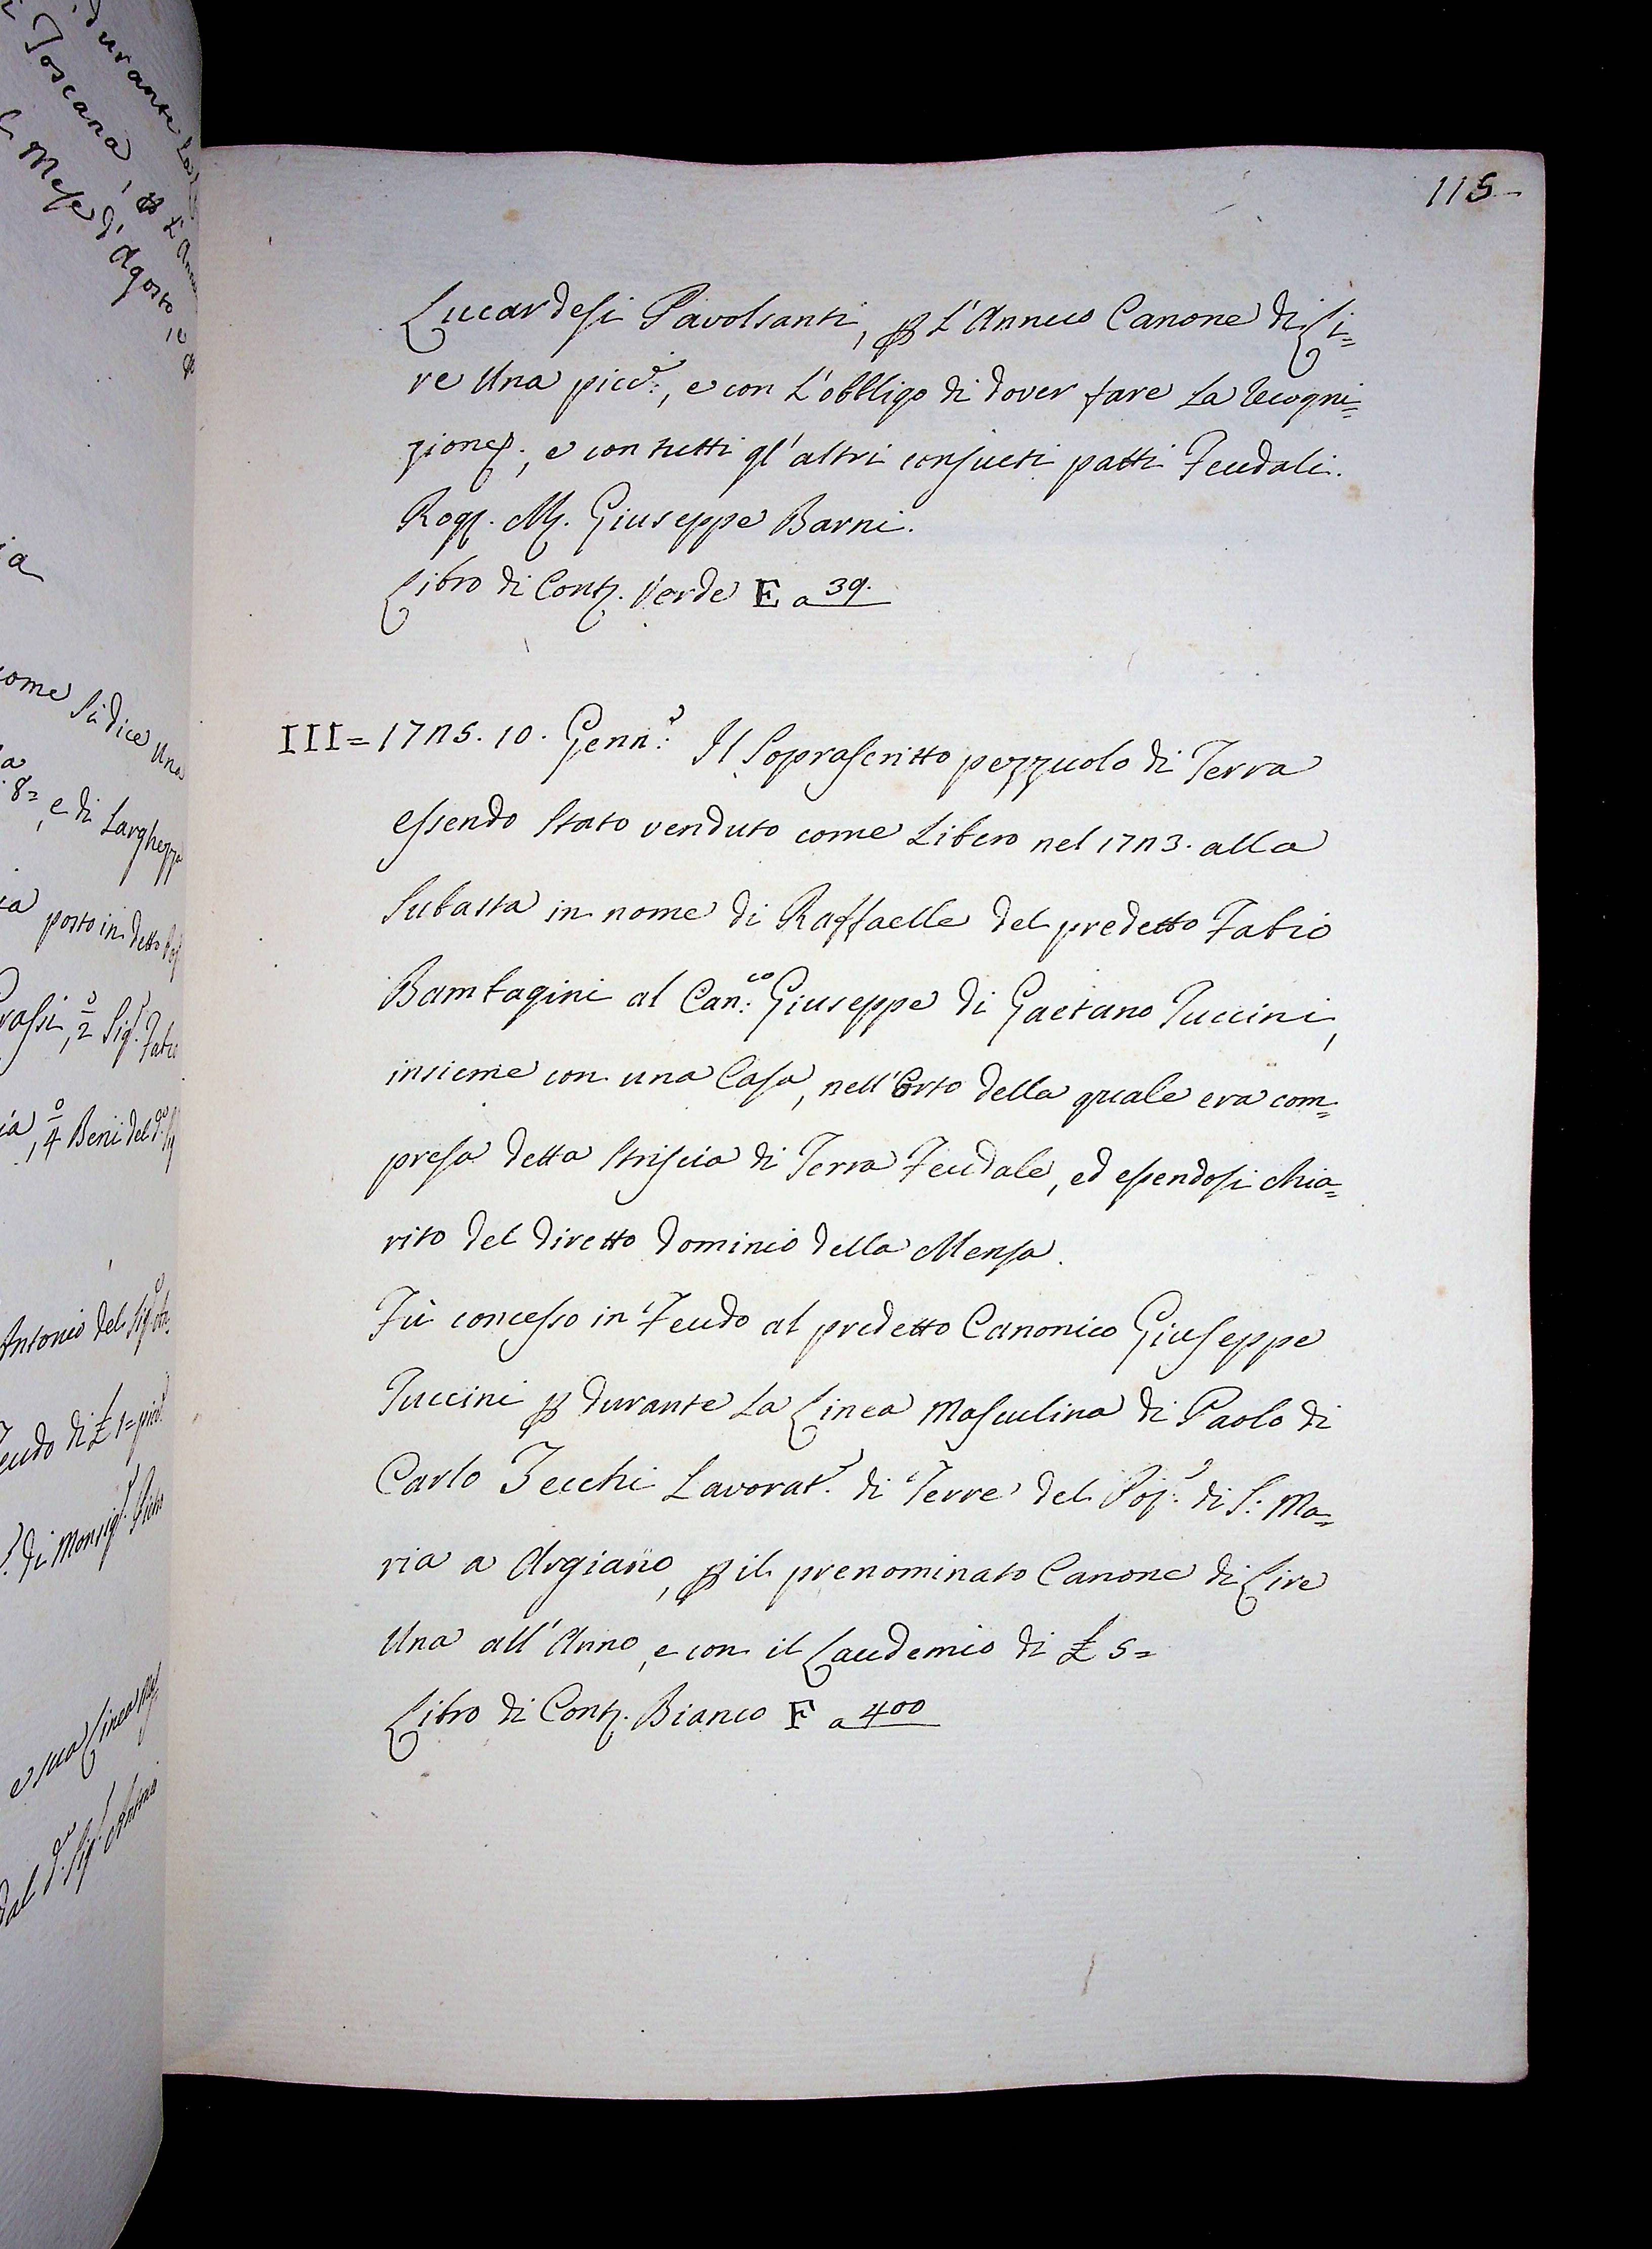 115
Lucardesi Pavolsanti, p L'Annuo Canone di Li=
re Una picc:, e con L'obbligo di dover fare La Recogni=
zione; e con tutti gl'altri consueti patti Feudali.
Rog. M. Giuseppe Barni.
Libro di Cont. Verde E a 39.
III= 1775. 10. Genn: Il Soprascritto pezzuolo di Terra
essendo stato venduto come Libero nel 1773. alla
Subasta in nome di Raffaelle del predetto Fabio
Bambagini al Can:co Giuseppe di Gaetano Puccini,
insieme con una Casa, nell'Orto della quale era com=
presa detta striscia di Terra Feudale, ed essendosi chia=
rito del diretto dominio della Mensa.
Fù concesso in Feudo al predetto Canonico Giuseppe
Puccini p durante La Linea Masculina di Paolo di
Carlo Zecchi Lavorat: di Terre del Pop: di S: Ma=
ria a Argiano, p il prenominato Canone di Lire
Una all'Anno, e con il Laudemio di £ 5=
Libro di Cont. Bianco F a 400
Toscana
Mese d'Agosto
come si dice Una
e di Larghezza
posto in detto
Beni del
Antonio del Sig
di Monsig
e sua Linea